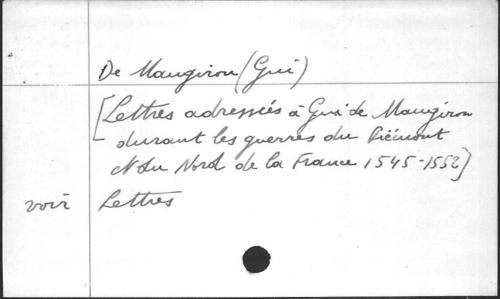 De Maugiron (Gui)
[Lettres adressées à Gui de Maugiron
durant les guerres du Piémont
et du Nord de la France 1545-1552]
voir Lettres